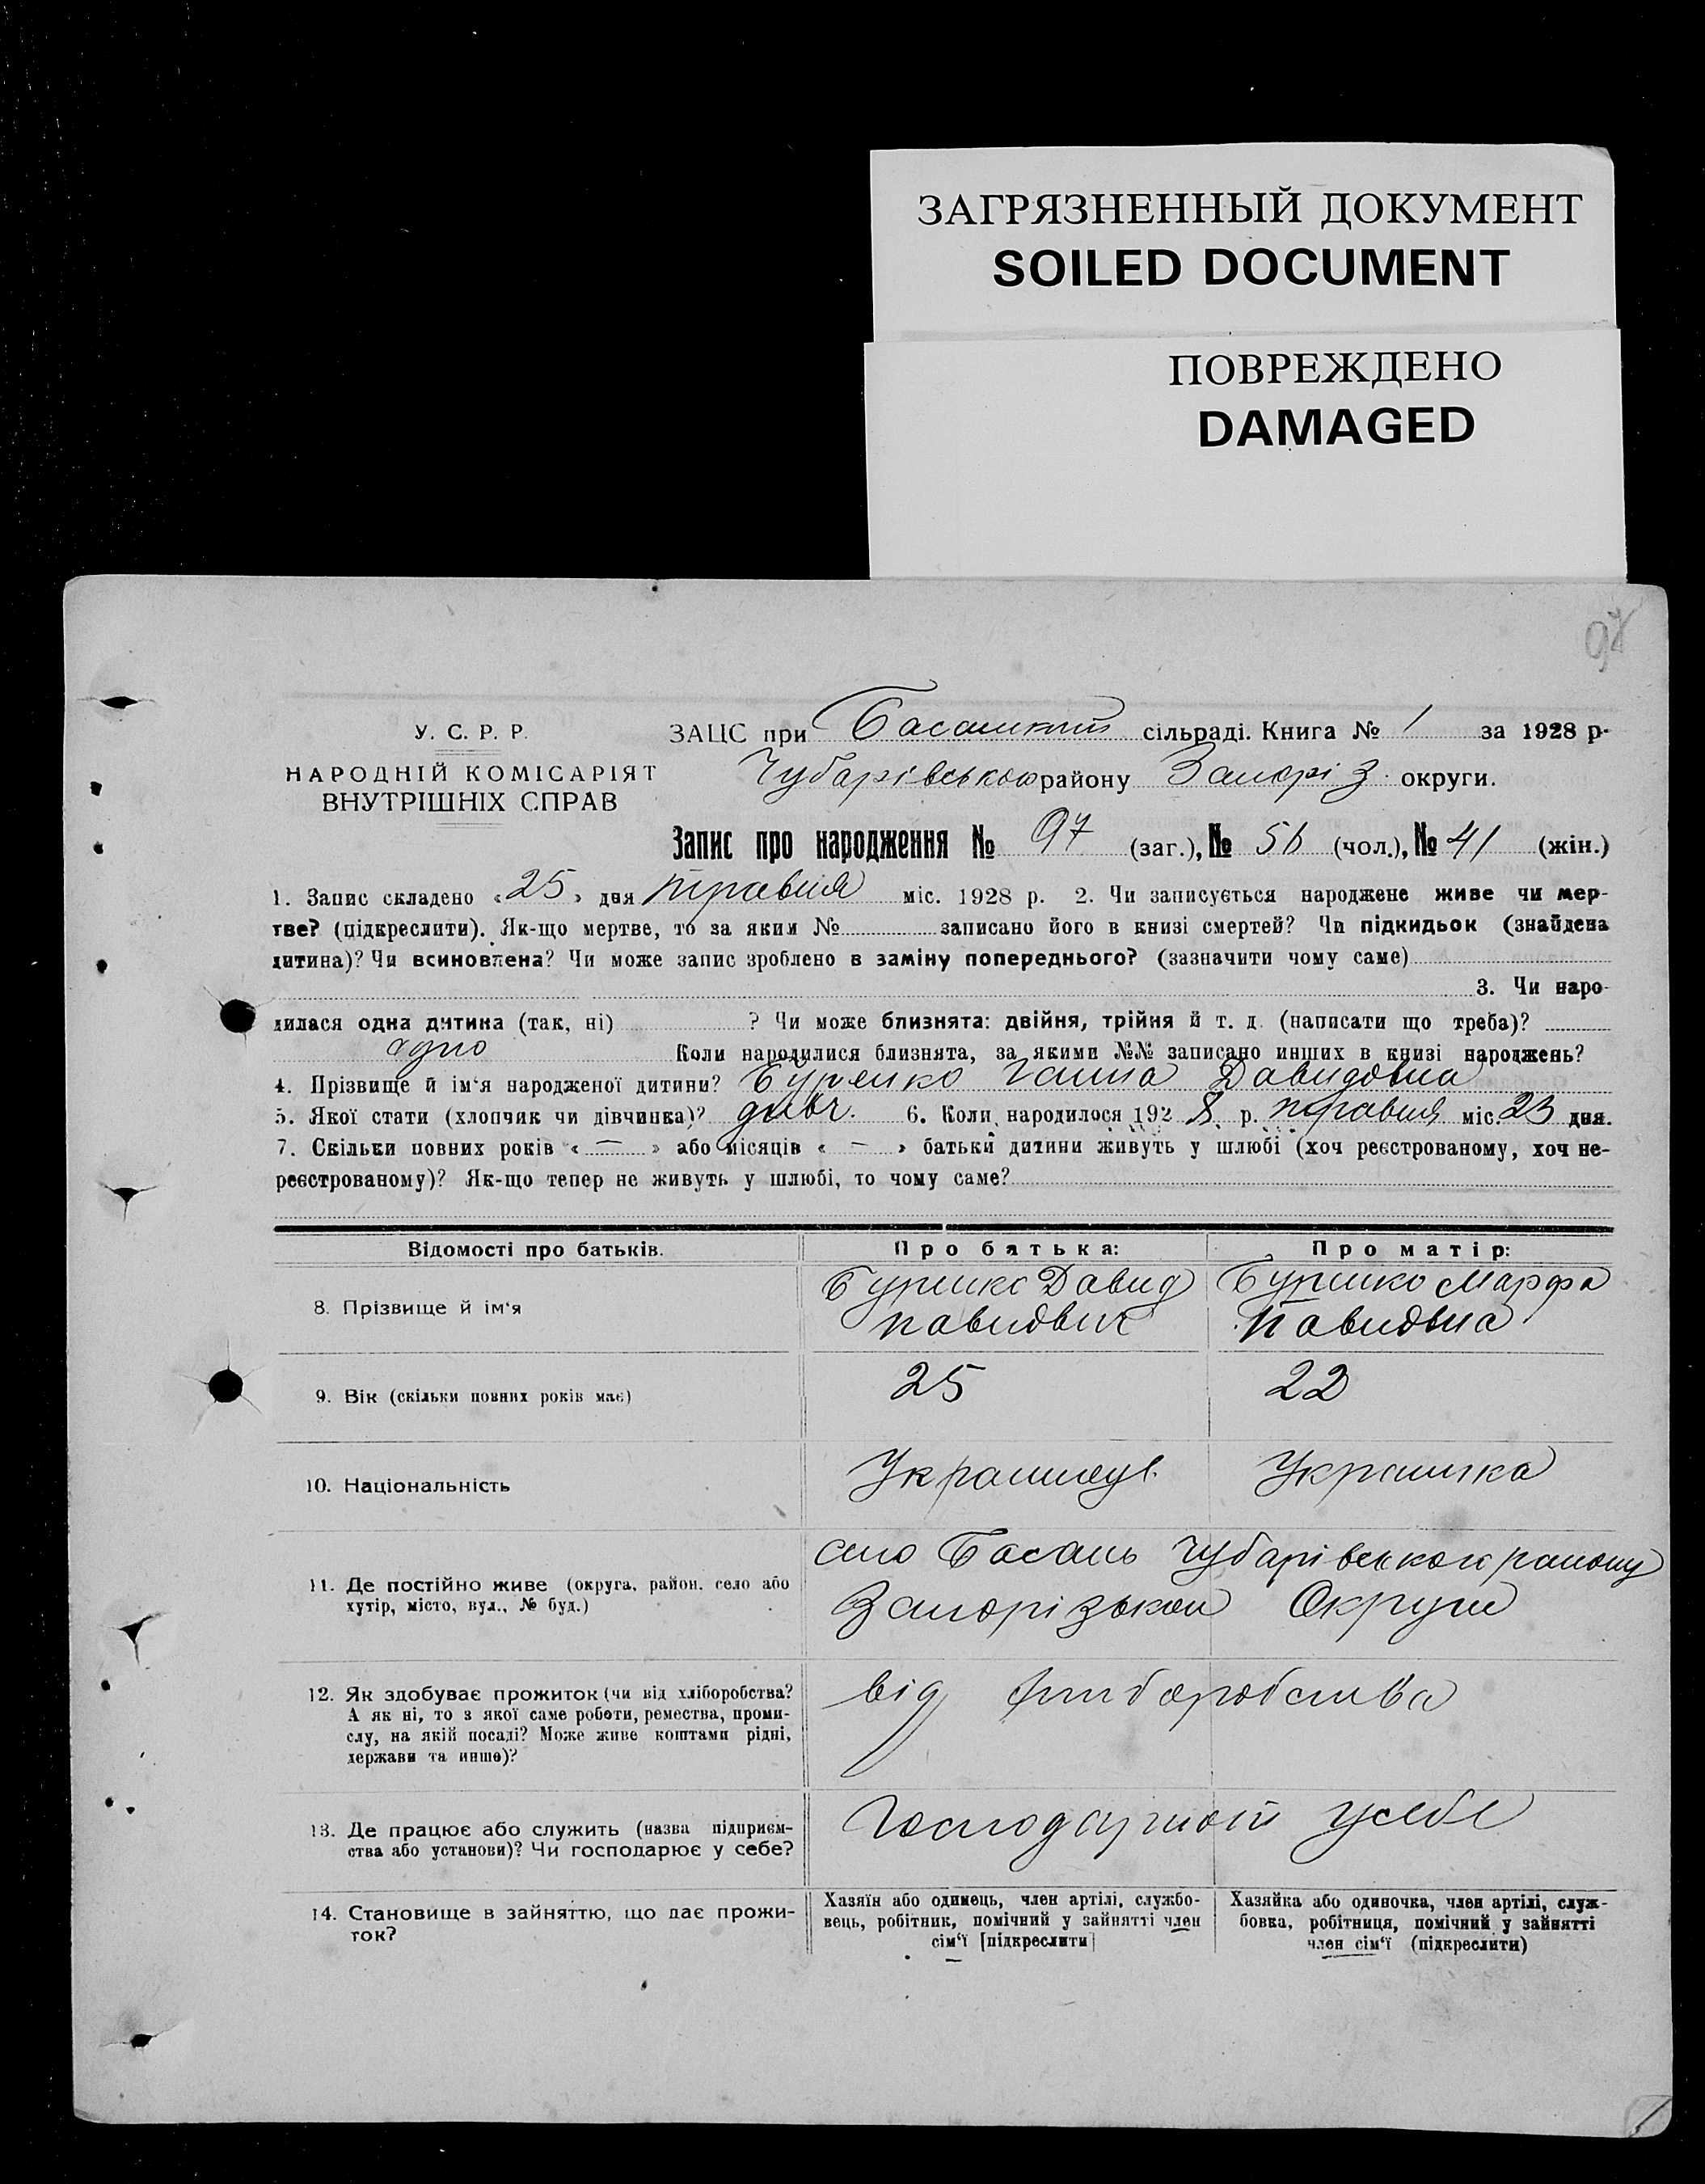 ЗАГРЯЗНЕННЫЙ ДОКУМЕНТ
SOILED DOCUMENT
ПОВРЕЖДЕНО
DAMAGED
97
У. С. Р. Р.
НАРОДНІЙ КОМІСАРІЯТ
ВНУТРІШНІХ СПРАВ
ЗАЦС при Басанький сільраді. Книга № 1 за 1928 р.
Чубарівського району Запоріз. округи.
Запис про народження № 97 (заг.), № 56 (чол.), № 41 (жін.)
1. Запис складено «25» дня травня міс. 1928 р. 2. Чи записується народжене живе чи мер-
тве? (підкреслити). Як-що мертве, то за яким № записано його в книзі смертей? Чи підкидьок (знайдена
дитина)? Чи всиновлена? Чи може запис зроблено в заміну попереднього? (зазначити чому саме)
3. Чи наро-
дилася одна дитина (так, ні) ? Чи може близнята: двійня, трійня й т. д. (написати що треба)?
одно Коли народилися близнята, за якими №№ записано инших в книзі народжень?
4. Прізвище й ім'я народженої дитини? Буренко Ганна Давидовна
5. Якої стати (хлопчик чи дівчинка)? дивч. 6. Коли народилося 1928 р. травня міс. 23 дня.
7. Скільки повних років « — » або місяців « — » батьки дитини живуть у шлюбі (хоч реєстрованому, хоч не-
реєстрованому)? Як-що тепер не живуть у шлюбі, то чому саме?
Відомості про батьків. Про батька: Про матір:
8. Прізвище й ім'я
Буренко Давид Буренко Марфа
9. Вік (скільки повних років має) 25 22
10. Національність Украинець Украинка
11. Де постійно живе (округа, район, село або
хутір, місто, вул., № буд.)
село Басань Чубарівського району
Запорізькои Округи
12. Як здобуває прожиток (чи від хліборобства?
А як ні, то з якої саме роботи, ремества, проми-
слу, на якій посаді? Може живе коштами рідні,
держави та инше)?
від хлиборобства
13. Де працює або служить (назва підприєм-
ства або установи)? Чи господарює у себе?
усебе
14. Становище в зайняттю, що дає прожи-
ток?
Хазяїн або одинець, член артілі, службо-
вець, робітник, помічний у зайнятті член
сім'ї [підкреслити]
Хазяйка або одиночка, член артілі, служ-
бовка, робітниця, помічний у зайнятті
член сім'ї (підкреслити)